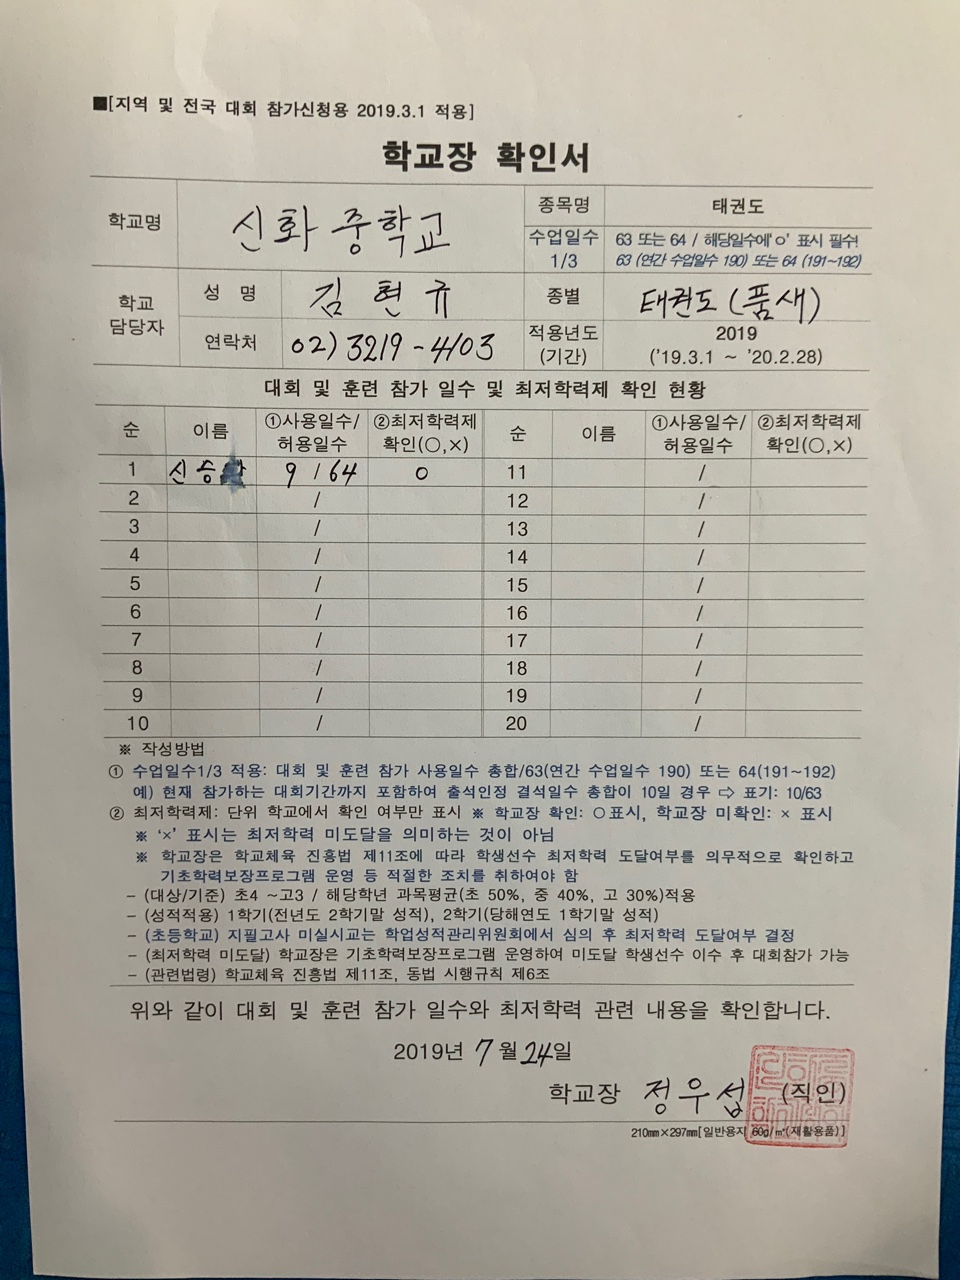 ■[지역 및 전국 대회 참가신청용 2019.3.1 적용]
학교장 확인서
학교명 신화 중학교 종목명 태권도
수업일수 1/3 63 또는 64 / 해당일수에 'ㅇ' 표시 필수!
63 (연간 수업일수 190) 또는 64 (191~192)
학교 담당자 성 명 김 현 규 종별 태권도(품새)
연락처 02) 3219-4103 적용년도 (기간) 2019
('19.3.1 ~ '20.2.28)
대회 및 훈련 참가 일수 및 최저학력제 확인 현황
순 이름 ①사용일수/허용일수 ②최저학력제 확인(○,×) 순 이름 ①사용일수/허용일수 ②최저학력제 확인(○,×)
1 신 승 9 / 64 ○ 11 /
2 / 12 /
3 / 13 /
4 / 14 /
5 / 15 /
6 / 16 /
7 / 17 /
8 / 18 /
9 / 19 /
10 / 20 /
※ 작성방법
① 수업일수1/3 적용: 대회 및 훈련 참가 사용일수 총합/63(연간 수업일수 190) 또는 64(191~192)
예) 현재 참가하는 대회기간까지 포함하여 출석인정 결석일수 총합이 10일 경우 ⇨ 표기: 10/63
② 최저학력제: 단위 학교에서 확인 여부만 표시 ※ 학교장 확인: ○표시, 학교장 미확인: × 표시
※ '×' 표시는 최저학력 미도달을 의미하는 것이 아님
※ 학교장은 학교체육 진흥법 제11조에 따라 학생선수 최저학력 도달여부를 의무적으로 확인하고
기초학력보장프로그램 운영 등 적절한 조치를 취하여야 함
- (대상/기준) 초4 ~고3 / 해당학년 과목평균(초 50%, 중 40%, 고 30%)적용
- (성적적용) 1학기(전년도 2학기말 성적), 2학기(당해연도 1학기말 성적)
- (초등학교) 지필고사 미실시교는 학업성적관리위원회에서 심의 후 최저학력 도달여부 결정
- (최저학력 미도달) 학교장은 기초학력보장프로그램 운영하여 미도달 학생선수 이수 후 대회참가 가능
- (관련법령) 학교체육 진흥법 제11조, 동법 시행규칙 제6조
위와 같이 대회 및 훈련 참가 일수와 최저학력 관련 내용을 확인합니다.
2019년 7월 24일
학교장 정우섭 (직인)
210㎜×297㎜[일반용지 60g/㎡(재활용품)]